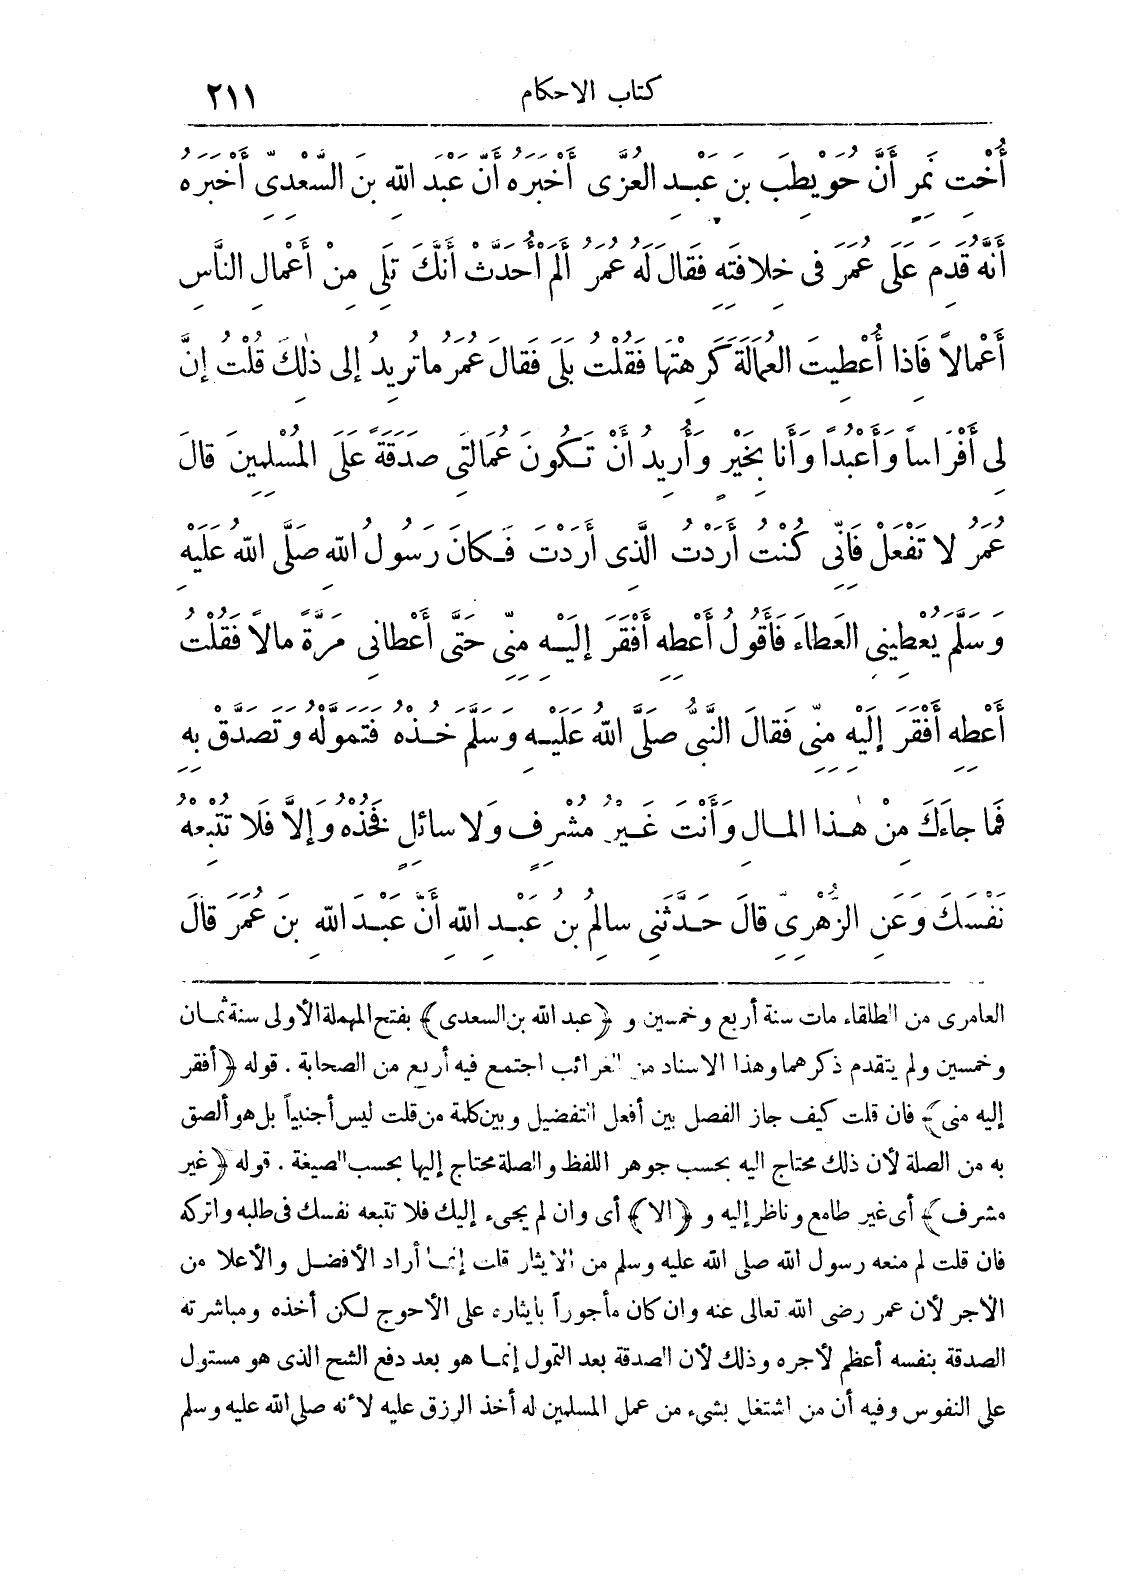 كتاب الاحكام ٢١١
أُخْتِ نَمِرٍ أَنَّ حُوَيْطِبَ بنَ عَبْدِ العُزَّى أَخْبَرَهُ أَنَّ عَبْدَ اللهِ بنَ السَّعْدِىِّ أَخْبَرَهُ
أَنَّهُ قَدِمَ عَلَى عُمَرَ فى خِلافَتِهِ فَقَالَ لَهُ عُمَرُ أَلَمْ أُحَدَّثْ أَنَّكَ تَلِى مِنْ أَعْمالِ النَّاسِ
أَعْمالاً فَاذا أُعْطِيتَ العُمالَةَ كَرِهْتَها فَقُلْتُ بَلَى فَقالَ عُمَرُ ما تُرِيدُ إلى ذٰلِكَ قُلْتُ إنَّ
لِى أَفْرَاساً وَأَعْبُداً وَأَنا بِخَيْرٍ وَأُرِيدُ أَنْ تَكُونَ عُمَالَتِى صَدَقَةً عَلَى المُسْلِمِينَ قالَ
عُمَرُ لا تَفْعَلْ فَانِّى كُنْتُ أَرَدْتُ الَّذِى أَرَدْتَ فَكانَ رَسُولُ اللهِ صَلَّى اللهُ عَلَيْهِ
وَسَلَّمَ يُعْطِينِى العَطاءَ فَأَقُولُ أَعْطِهِ أَفْقَرَ إلَيْهِ مِنِّى حَتَّى أَعْطانِى مَرَّةً مالاً فَقُلْتُ
أَعْطِهِ أَفْقَرَ إلَيْهِ مِنِّى فَقالَ النَّبىُّ صَلَّى اللهُ عَلَيْهِ وَسَلَّمَ خُذْهُ فَتَمَوَّلْهُ وَتَصَدَّقْ بِهِ
فَمَا جاءَكَ مِنْ هٰذا المالِ وَأَنْتَ غَيْرُ مُشْرِفٍ وَلا سائِلٍ فَخُذْهُ وَإلاَّ فَلا تُتْبِعْهُ
نَفْسَكَ وَعَنِ الزُّهْرِىِّ قالَ حَدَّثَنِى سالِمُ بنُ عَبْدِ اللهِ أَنَّ عَبْدَ اللهِ بنَ عُمَرَ قالَ
العامرى من الطلقاء مات سنة أربع وخمسين و ﴿عبد الله بن السعدى﴾ بفتح المهملة الأولى سنة ثمان
وخمسين ولم يتقدم ذكرهما وهذا الاسناد من الغرائب اجتمع فيه أربع من الصحابة . قوله ﴿أفقر
إليه منى﴾ فان قلت كيف جاز الفصل بين أفعل التفضيل وبين كلمة من قلت ليس أجنبياً بل هو ألصق
به من الصلة لأن ذلك محتاج اليه بحسب جوهر اللفظ والصلة محتاج إليها بحسب الصيغة . قوله ﴿غير
مشرف﴾ أى غير طامع وناظر إليه و ﴿الا﴾ أى وان لم يجىء إليك فلا تتبعه نفسك فى طلبه واتركه
فان قلت لم منعه رسول الله صلى الله عليه وسلم من الايثار قلت إنما أراد الأفضل والأعلا من
الأجر لأن عمر رضى الله تعالى عنه وان كان مأجوراً بايثاره على الأحوج لكن أخذه ومباشرته
الصدقة بنفسه أعظم لأجره وذلك لأن الصدقة بعد التمول إنما هو بعد دفع الشح الذى هو مستول
على النفوس وفيه أن من اشتغل بشىء من عمل المسلمين له أخذ الرزق عليه لأنه صلى الله عليه وسلم